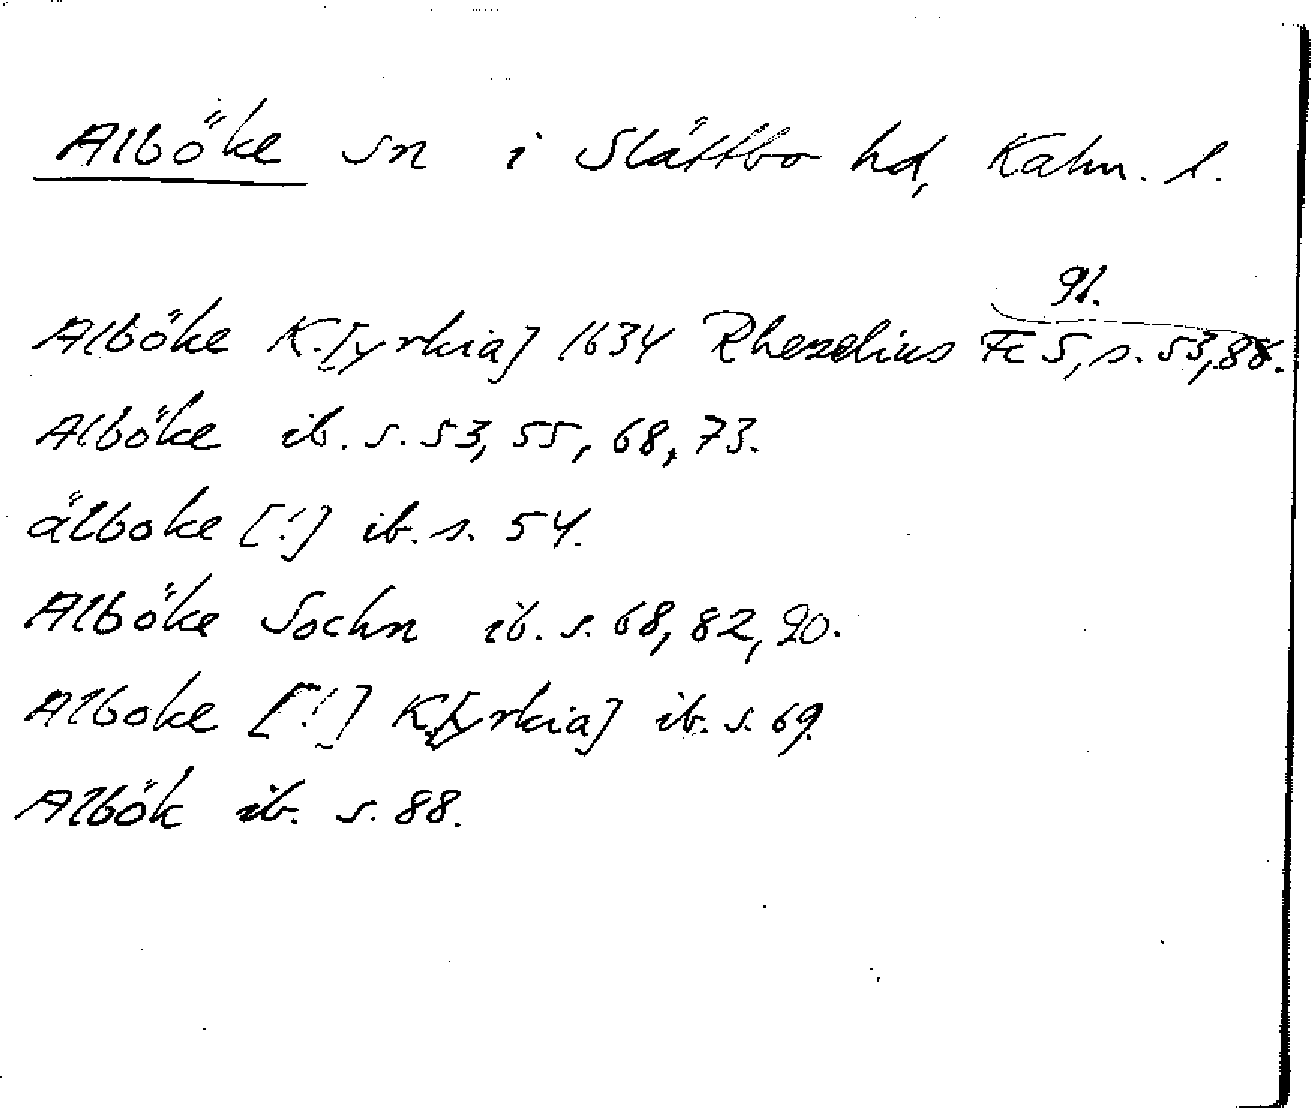 Alböke sn i Slättbo hd, Kalm. l.
91.
Alböke K.[yrkia] 1634 Rhezelius Fc 5, s. 53, 88.
Alböke ib. s. 53, 55, 68, 73.
älboke [!] ib. s. 54.
Alböke Sochn ib. s. 68, 82, 90.
Alboke [!] K[yrkia] ib. s. 69.
Albök ib. s. 88.